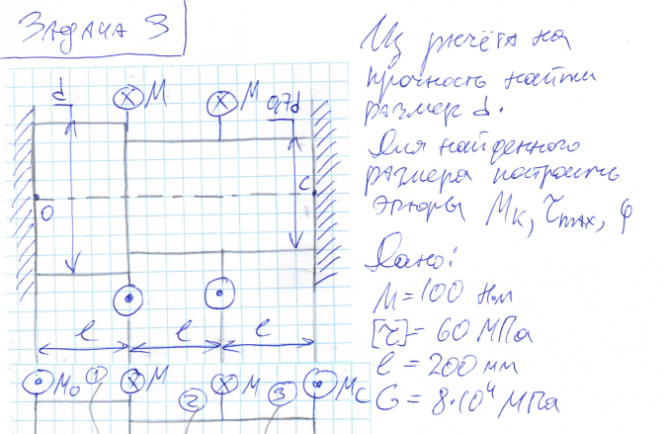 Задача 3
Из расчёта на
прочность найти
размер d.
Для найденного
размера построить
эпюры Mк, τmax, φ
Дано:
M=100 Н·м
[τ]= 60 МПа
l = 200 мм
G = 8·10⁴ МПа
d M M 0,7d
O C
l l l
M₀ 1 M 2 M 3 Mc